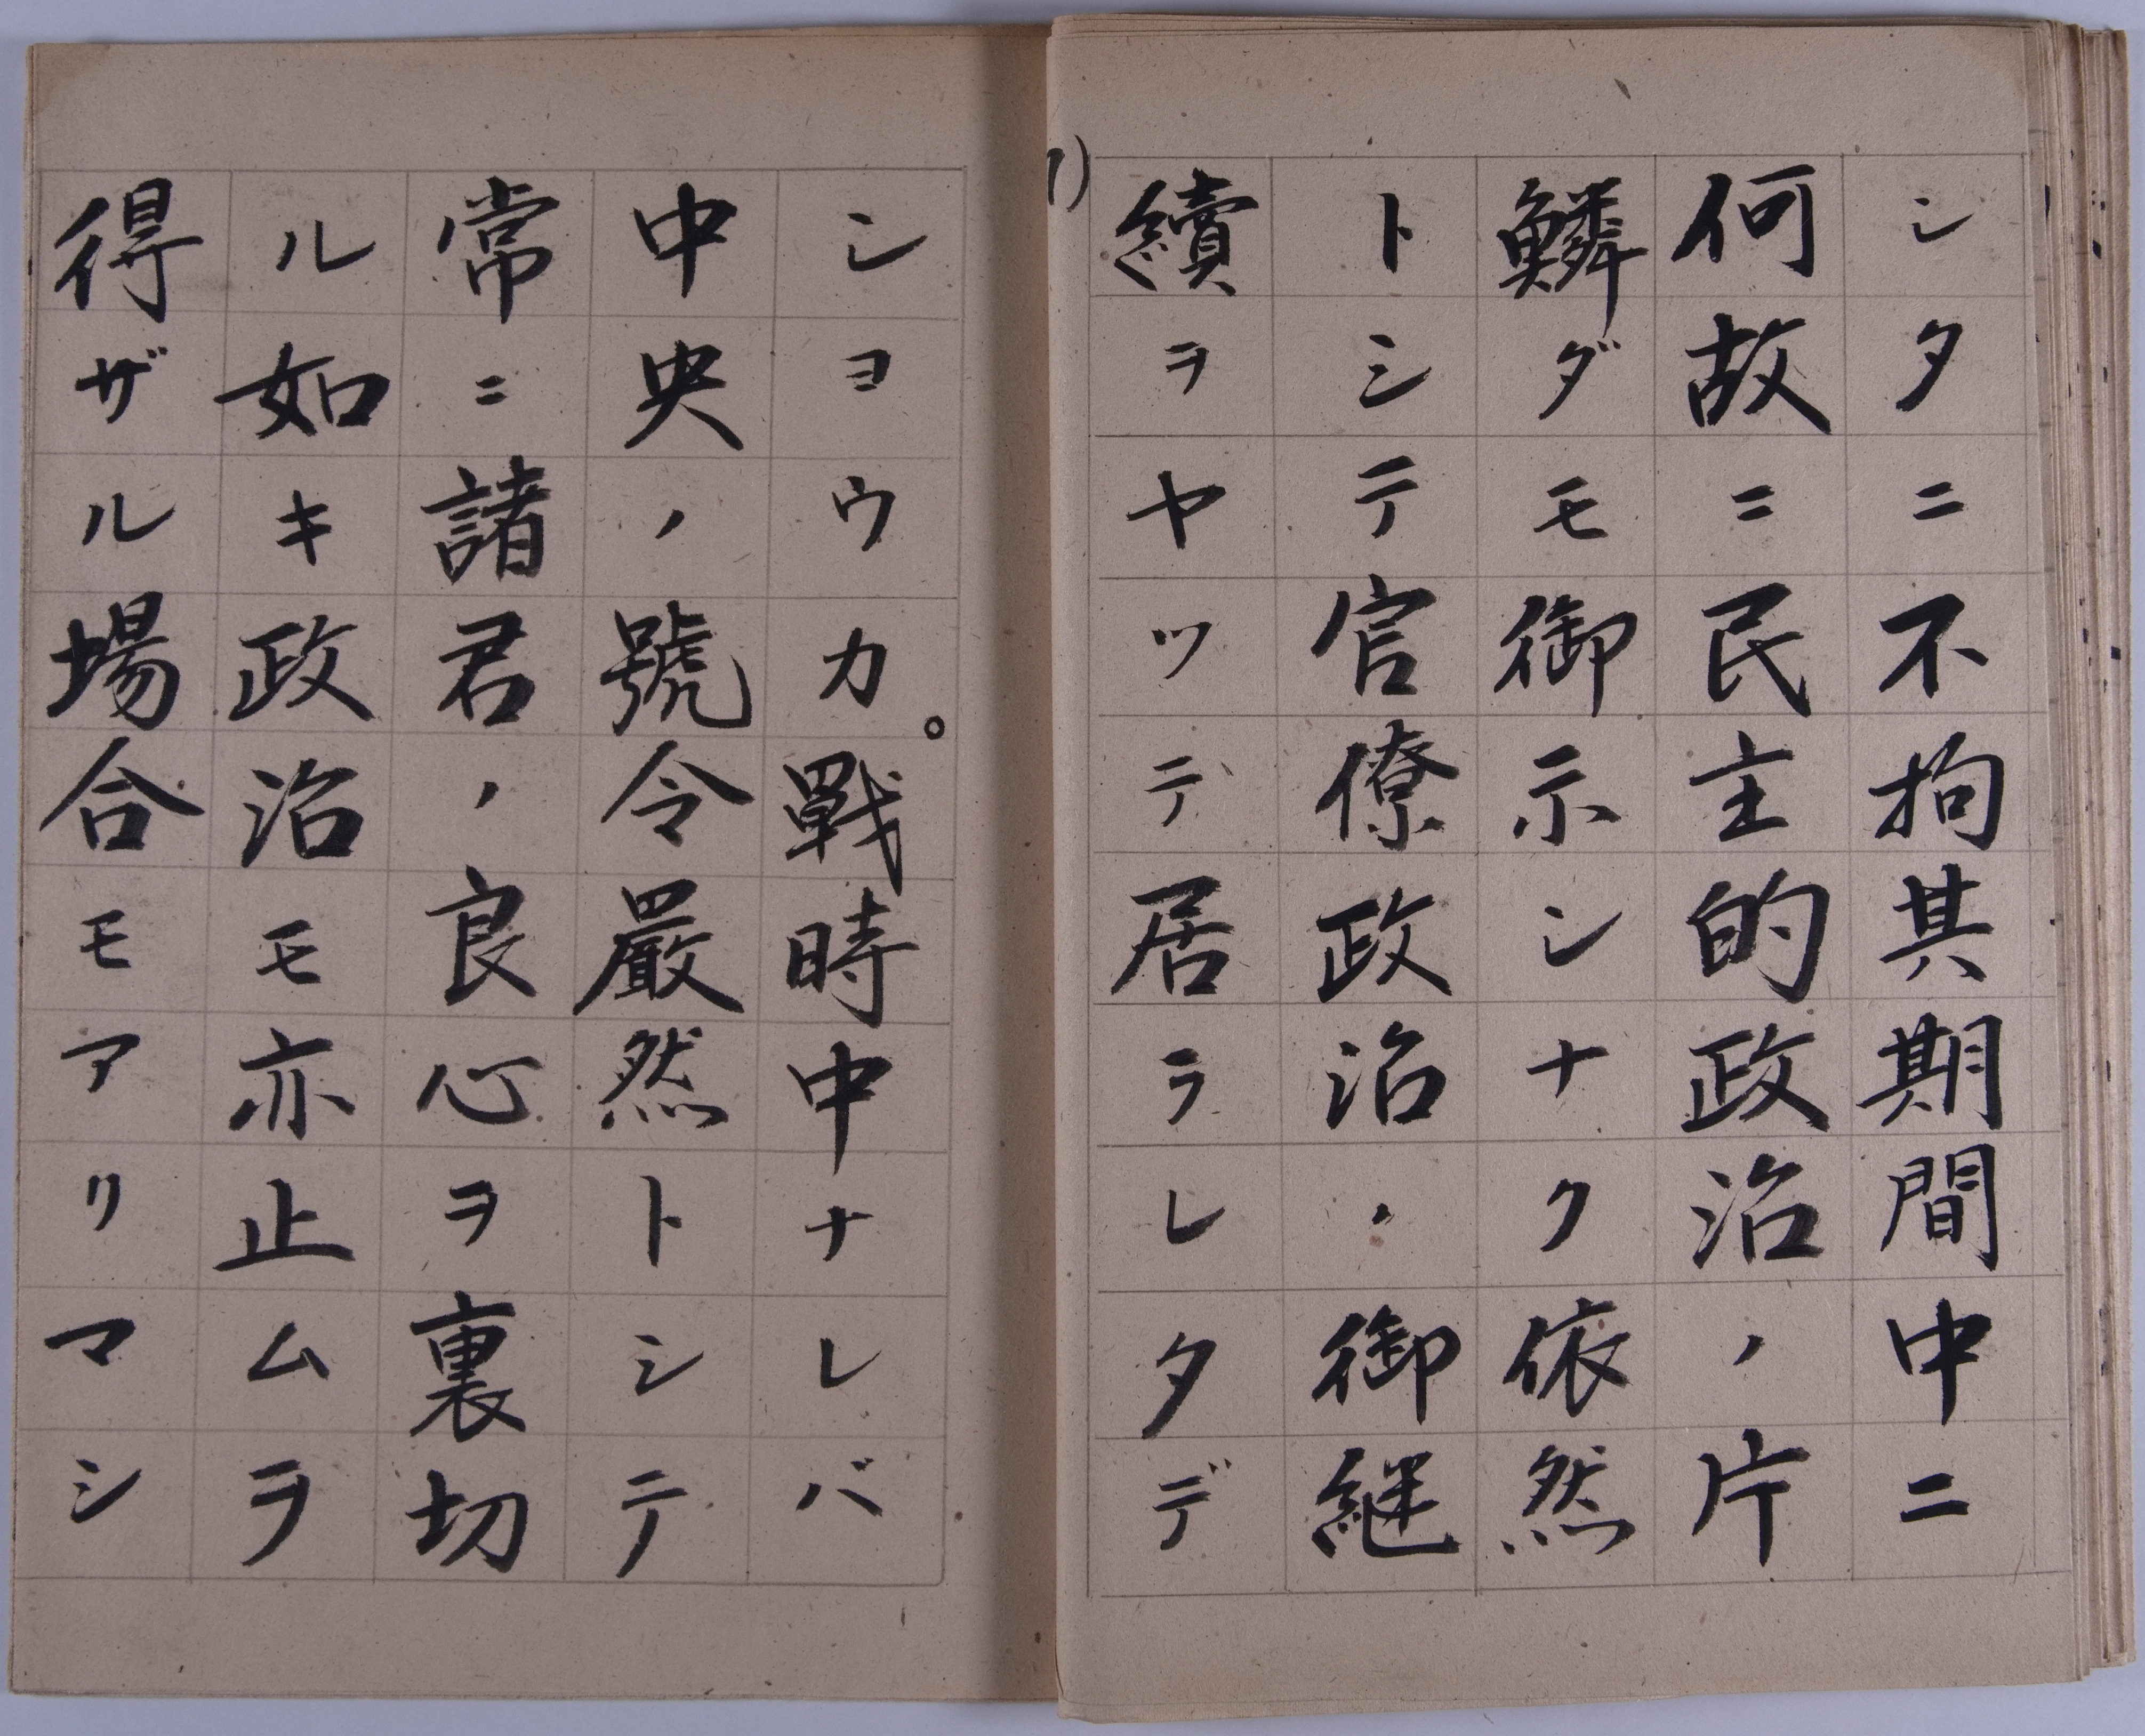 シタニ不拘其期間中ニ
何故ニ民主的政治ノ片
鱗ダモ御示シナク依然
トシテ官僚政治ノ御継
續ヲヤツテ居ラレタデ
シヨウカ。戰時中ナレバ
中央ノ號令嚴然トシテ
常ニ諸君ノ良心ヲ裏切
ル如キ政治モ亦止ムヲ
得ザル場合モアリマシ